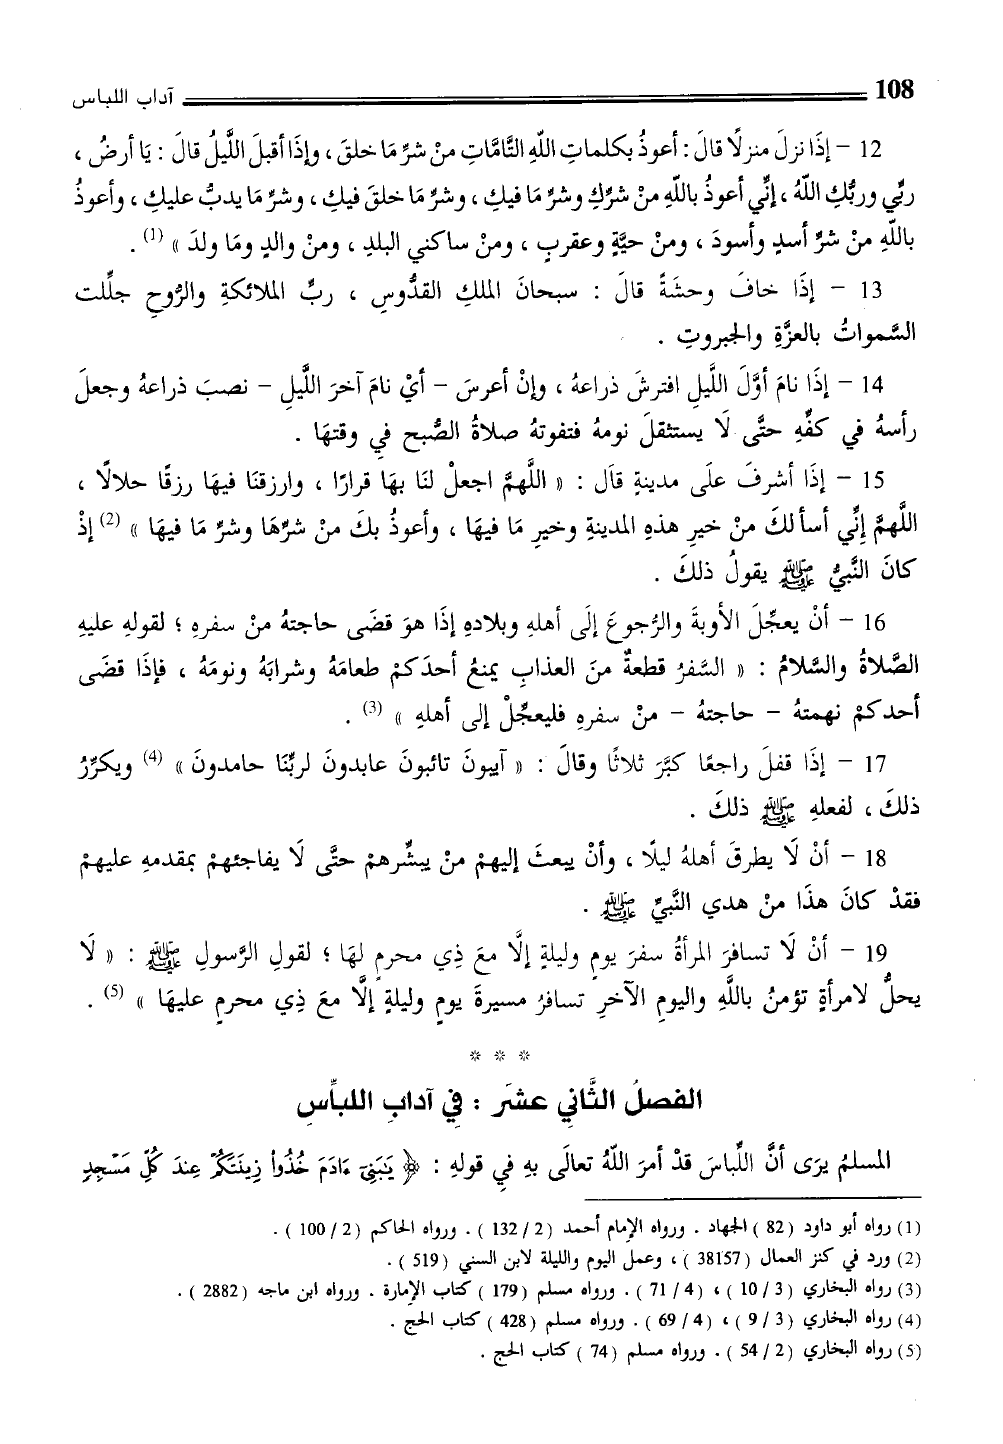 108 آداب اللباس
12 – إذَا نزلَ منزلًا قالَ : أعوذُ بكلماتِ اللّهِ التَّامَّاتِ منْ شرِّ مَا خلقَ ، وإذَا أقبلَ اللَّيلُ قالَ : يَا أرضُ ،
ربِّي وربُّكِ اللّهُ ، إنِّي أعوذُ باللّهِ منْ شرِّكِ وشرِّ مَا فيكِ ، وشرِّ مَا خلقَ فيكِ ، وشرِّ مَا يدبُّ عليكِ ، وأعوذُ
باللّهِ منْ شرِّ أسدٍ وأسودَ ، ومنْ حيَّةٍ وعقربٍ ، ومنْ ساكني البلدِ ، ومنْ والدٍ ومَا ولدَ » (1) .
13 – إذَا خافَ وحشةً قالَ : سبحانَ الملكِ القدُّوسِ ، ربِّ الملائكةِ والرُّوحِ جلَّلت
السَّمواتُ بالعزَّةِ والجبروتِ .
14 – إذَا نامَ أوَّلَ اللَّيلِ افترشَ ذراعهُ ، وإنْ أعرسَ – أيْ نامَ آخرَ اللَّيلِ – نصبَ ذراعهُ وجعلَ
رأسهُ في كفِّهِ حتَّى لَا يستثقلَ نومهُ فتفوتهُ صلاةُ الصُّبحِ فِي وقتهَا .
15 – إذَا أشرفَ علَى مدينةٍ قالَ : « اللَّهمَّ اجعلْ لنَا بهَا قرارًا ، وارزقنَا فيهَا رزقًا حلالًا ،
اللَّهمَّ إنِّي أسألكَ منْ خيرِ هذهِ المدينةِ وخيرِ مَا فيهَا ، وأعوذُ بكَ منْ شرِّهَا وشرِّ مَا فيهَا » (2) إذْ
كانَ النَّبيُّ ﷺ يقولُ ذلكَ .
16 – أنْ يعجِّلَ الأوبةَ والرُّجوعَ إلَى أهلهِ وبلادهِ إذَا هوَ قضَى حاجتهُ منْ سفرهِ ؛ لقولهِ عليهِ
الصَّلاةُ والسَّلامُ : « السَّفرُ قطعةٌ منَ العذابِ يمنعُ أحدَكمْ طعامَهُ وشرابَهُ ونومَهُ ، فإذَا قضَى
أحدكمْ نهمتهُ – حاجتهُ – منْ سفرهِ فليعجِّلْ إلى أهلهِ » (3) .
17 – إذَا قفلَ راجعًا كبَّرَ ثلاثًا وقالَ : « آيبونَ تائبونَ عابدونَ لربِّنَا حامدونَ » (4) ويكرِّرُ
ذلكَ ، لفعلهِ ﷺ ذلكَ .
18 – أنْ لَا يطرقَ أهلهُ ليلًا ، وأنْ يبعثَ إليهمْ منْ يبشِّرهمْ حتَّى لَا يفاجئهمْ بمقدمهِ عليهمْ
فقدْ كانَ هذَا منْ هدي النَّبيِّ ﷺ .
19 – أنْ لَا تسافرَ المرأةُ سفرَ يومٍ وليلةٍ إلَّا معَ ذِي محرمٍ لهَا ؛ لقولِ الرَّسولِ ﷺ : « لَا
يحلُّ لامرأةٍ تؤمنُ باللَّهِ واليومِ الآخرِ تسافرُ مسيرةَ يومٍ وليلةٍ إلَّا معَ ذِي محرمٍ عليهَا » (5) .
* * *
الفصلُ الثَّاني عشرَ : فِي آدابِ اللبَّاسِ
المسلمُ يرَى أنَّ اللِّباسَ قدْ أمرَ اللّهُ تعالَى بهِ فِي قولهِ : ﴿ يَـٰبَنِىٓ ءَادَمَ خُذُوا۟ زِينَتَكُمْ عِندَ كُلِّ مَسْجِدٍ
(1) رواه أبو داود ( 82 ) الجهاد . ورواه الإمام أحمد ( 2 / 132 ) . ورواه الحاكم ( 2 / 100 ) .
(2) ورد في كنز العمال ( 38157 ) ، وعمل اليوم والليلة لابن السني ( 519 ) .
(3) رواه البخاري ( 3 / 10 ) ، ( 4 / 71 ) . ورواه مسلم ( 179 ) كتاب الإمارة . ورواه ابن ماجه ( 2882 ) .
(4) رواه البخاري ( 3 / 9 ) ، ( 4 / 69 ) . ورواه مسلم ( 428 ) كتاب الحج .
(5) رواه البخاري ( 2 / 54 ) . ورواه مسلم ( 74 ) كتاب الحج .